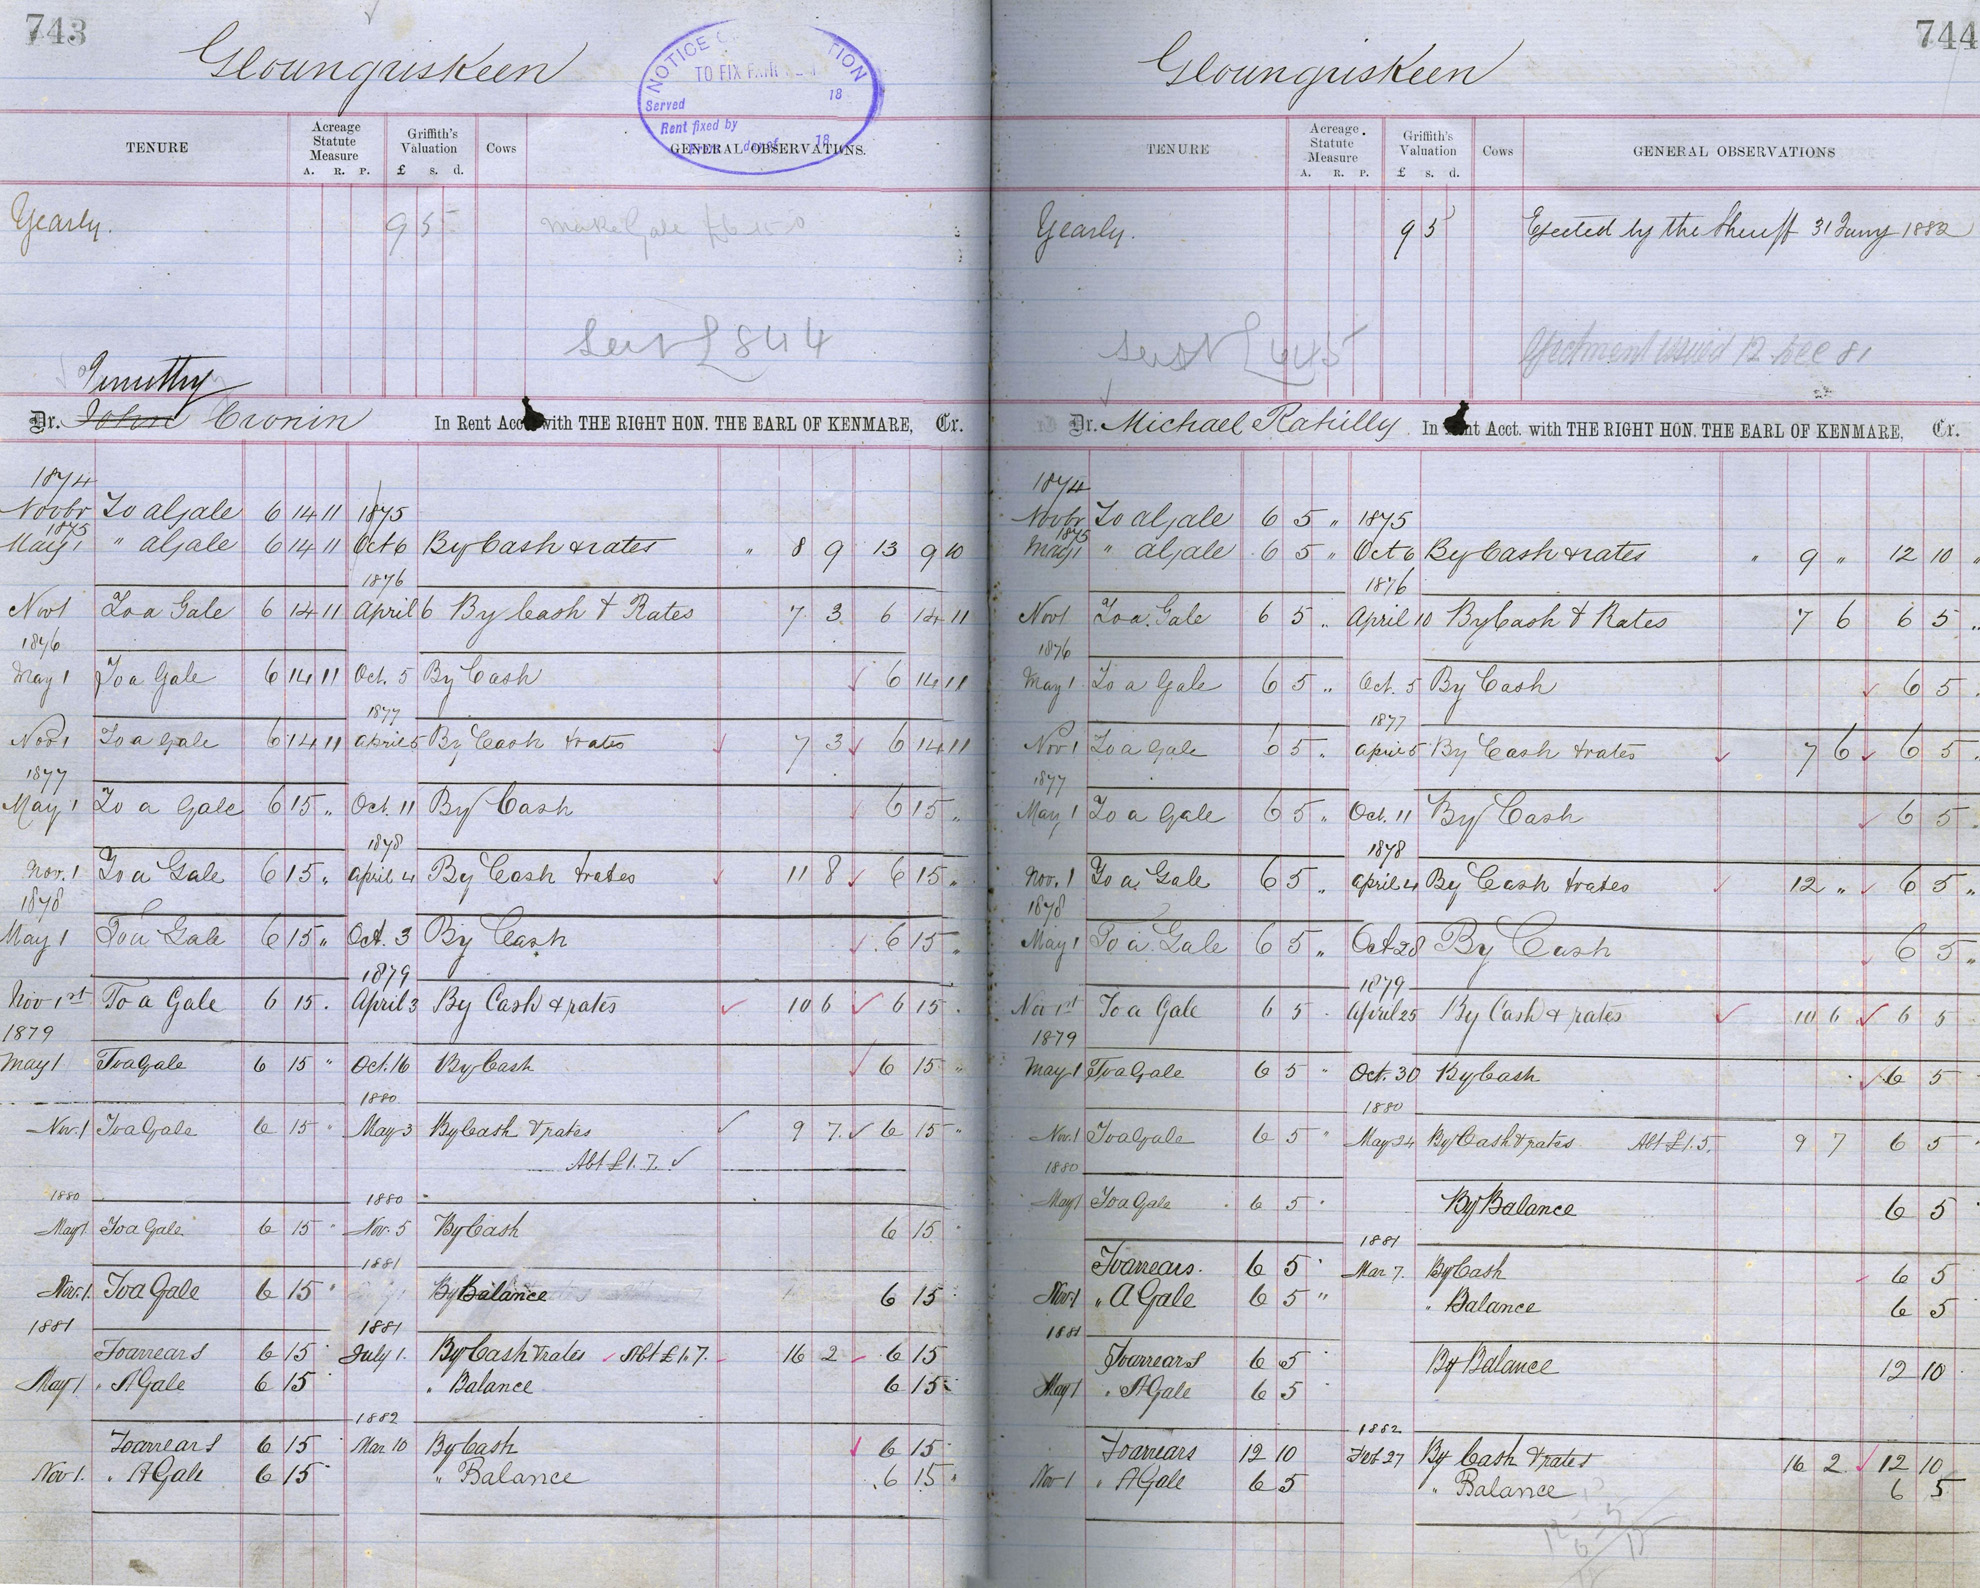 743
Gloungriskeen
NOTICE
TION
TO FIX FAIR
Served
18
Rent fixed by
day of
18
TENURE
Acreage Statute Measure
A. R. P.
Griffith's Valuation
£ s. d.
Cows
GENERAL OBSERVATIONS.
Yearly.
9 5
Make Gale £6 15 0
£844
Timothy
Dr. John Cronin In Rent Acct with THE RIGHT HON. THE EARL OF KENMARE, Cr.
1874
Novbr To a Gale 6 14 11 1875
1875
May 1 " a Gale 6 14 11 Oct 6 By Cash & rates " 8 9 13 9 10
1876
Nov 1 To a Gale 6 14 11 April 6 By Cash & Rates 7 3 6 14 11
1876
May 1 To a Gale 6 14 11 Oct. 5 By Cash 6 14 11
1877
Nov 1 To a Gale 6 14 11 April 5 By Cash & rates 7 3 6 14 11
1877
May 1 To a Gale 6 15 " Oct. 11 By Cash 6 15 "
1878
Nov. 1 To a Gale 6 15 " April 4 By Cash & rates 11 8 6 15 "
1878
May 1 To a Gale 6 15 " Oct. 3 By Cash 6 15 "
1879
Nov 1st To a Gale 6 15 . April 3 By Cash & rates 10 6 6 15 .
1879
May 1 To a Gale 6 15 " Oct. 16 By Cash 6 15 "
1880
Nov. 1 To a Gale 6 15 " May 3 By Cash & rates 9 7 6 15 "
Abt £1. 7.
1880 1880
May 1 To a Gale 6 15 " Nov. 5 By Cash 6 15 "
1881
Nov. 1 To a Gale 6 15 " By Balance 6 15 "
1881 1881
To arrears 6 15 " July 1. By Cash & rates Abt £1.7. 16 2 6 15
May 1 " A Gale 6 15 " Balance 6 15 "
1882
To arrears 6 15 Mar 10 By Cash 6 15 "
Nov 1. " A Gale 6 15 " Balance 6 15 "
744
Gloungriskeen
TENURE
Acreage Statute Measure
A. R. P.
Griffith's Valuation
£ s. d.
Cows
GENERAL OBSERVATIONS
Yearly.
9 5
Ejected by the Sheriff 31 Jany 1882
Ejectment issued 12 Dec 81
Dr. Michael Rahilly In Rent Acct. with THE RIGHT HON. THE EARL OF KENMARE, Cr.
1874
Novbr To a Gale 6 5 " 1875
1875
May 1 " a Gale 6 5 " Oct 6 By Cash & rates " 9 " 12 10 "
1876
Nov 1 To a Gale 6 5 " April 10 By Cash & Rates 7 6 6 5 "
1876
May 1 To a Gale 6 5 " Oct. 5 By Cash 6 5 "
1877
Nov 1 To a Gale 6 5 " April 5 By Cash & rates 7 6 6 5 "
1877
May 1 To a Gale 6 5 " Oct. 11 By Cash 6 5 "
1878
Nov. 1 To a Gale 6 5 " April 4 By Cash & rates 12 " 6 5 "
1878
May 1 To a Gale 6 5 " Oct 28 By Cash 6 5 "
1879
Nov 1st To a Gale 6 5 . April 25 By Cash & rates 10 6 6 5
1879
May 1 To a Gale 6 5 " Oct. 30 By Cash 6 5
1880
Nov. 1 To a Gale 6 5 " May 24 By Cash & rates Abt £1.5. 9 7 6 5
1880
May 1 To a Gale 6 5 " By Balance 6 5
1881
To arrears. 6 5 " Mar 7. By Cash 6 5
Nov. 1 " A Gale 6 5 " " Balance 6 5
1881
To arrears 6 5 By Balance 12 10
May 1 " A Gale 6 5
1882
To arrears 12 10 Feb 27 By Cash & rates 16 2 12 10
Nov 1 " A Gale 6 5 " Balance 6 5